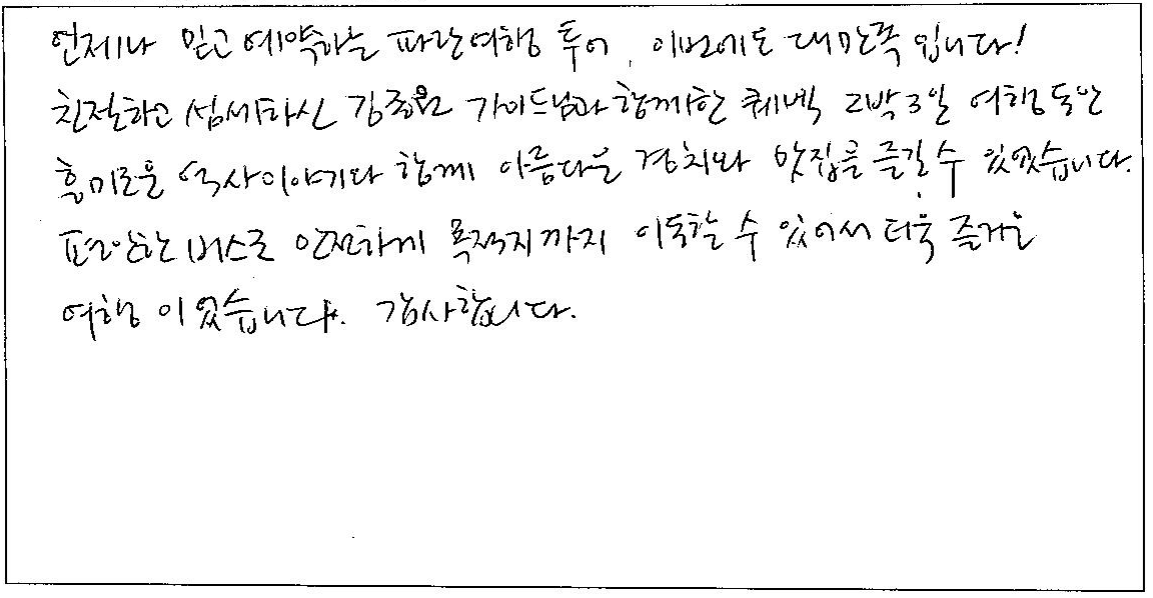 언제나 믿고 예약하는 파란여행 투어, 이번에도 대만족입니다!
친절하고 섬세하신 가이드님과 함께한 퀘벡 2박3일 여행동안
흥미로운 역사이야기와 함께 아름다운 경치와 맛집을 즐길 수 있었습니다.
편안한 버스로 안전하게 목적지까지 이동할 수 있어서 더욱 즐거운
여행이었습니다. 감사합니다.